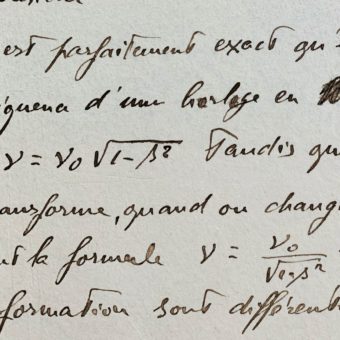 est parfaitement exact qu'
quence d'une horloge en
ν = ν₀ √1-β² Tandis qu
ansforme, quand on chang
nt la formule ν = ν₀/√1-β²
formation sont différent